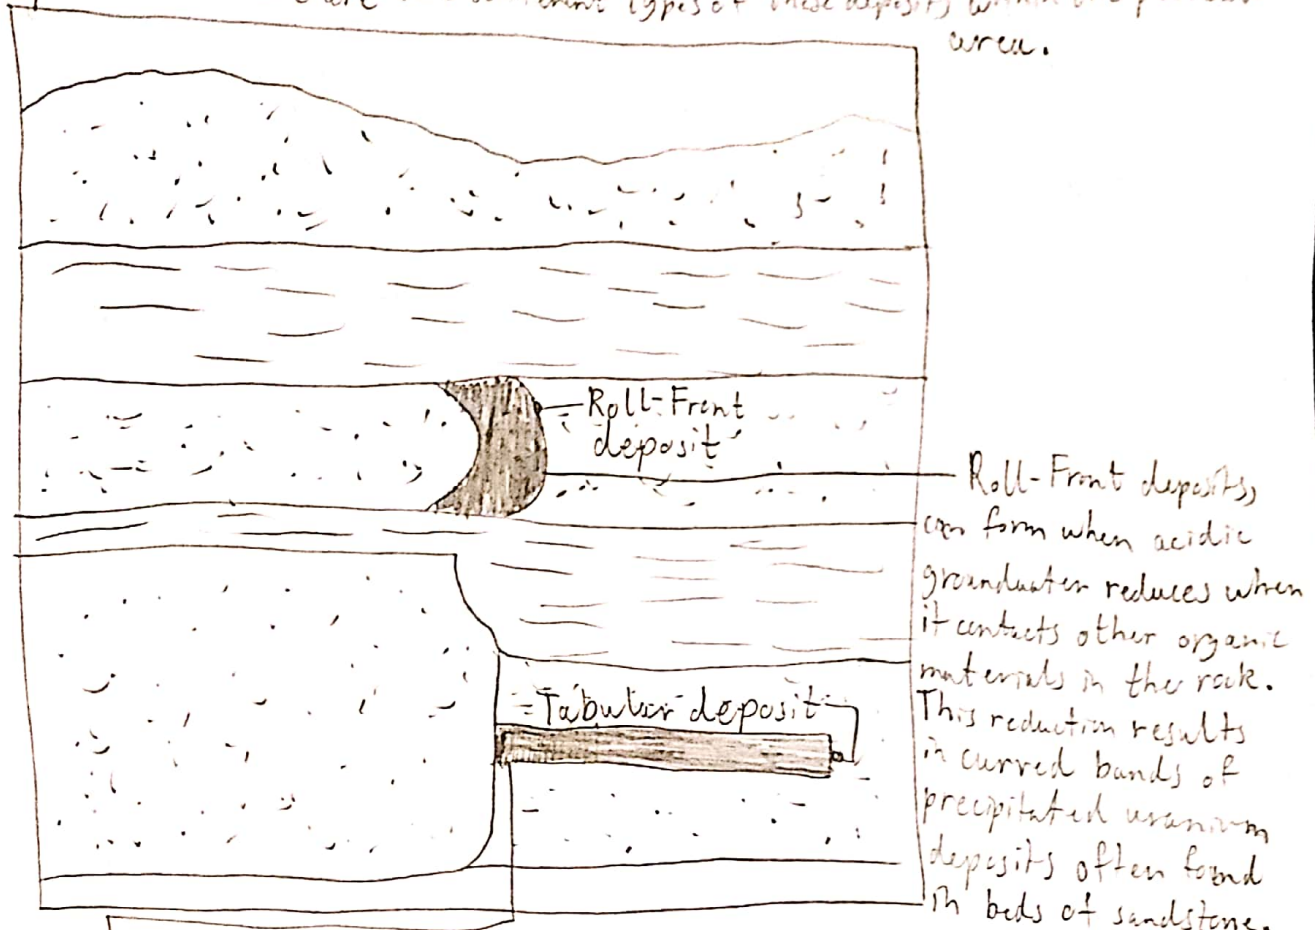 types of these deposits within the
area.
Roll-Front
deposit
Roll-Front deposits,
can form when acidic
groundwater reduces when
it contacts other organic
materials in the rock.
This reduction results
in curved bands of
precipitated uranium
deposits often found
in beds of sandstone.
Tabular deposit